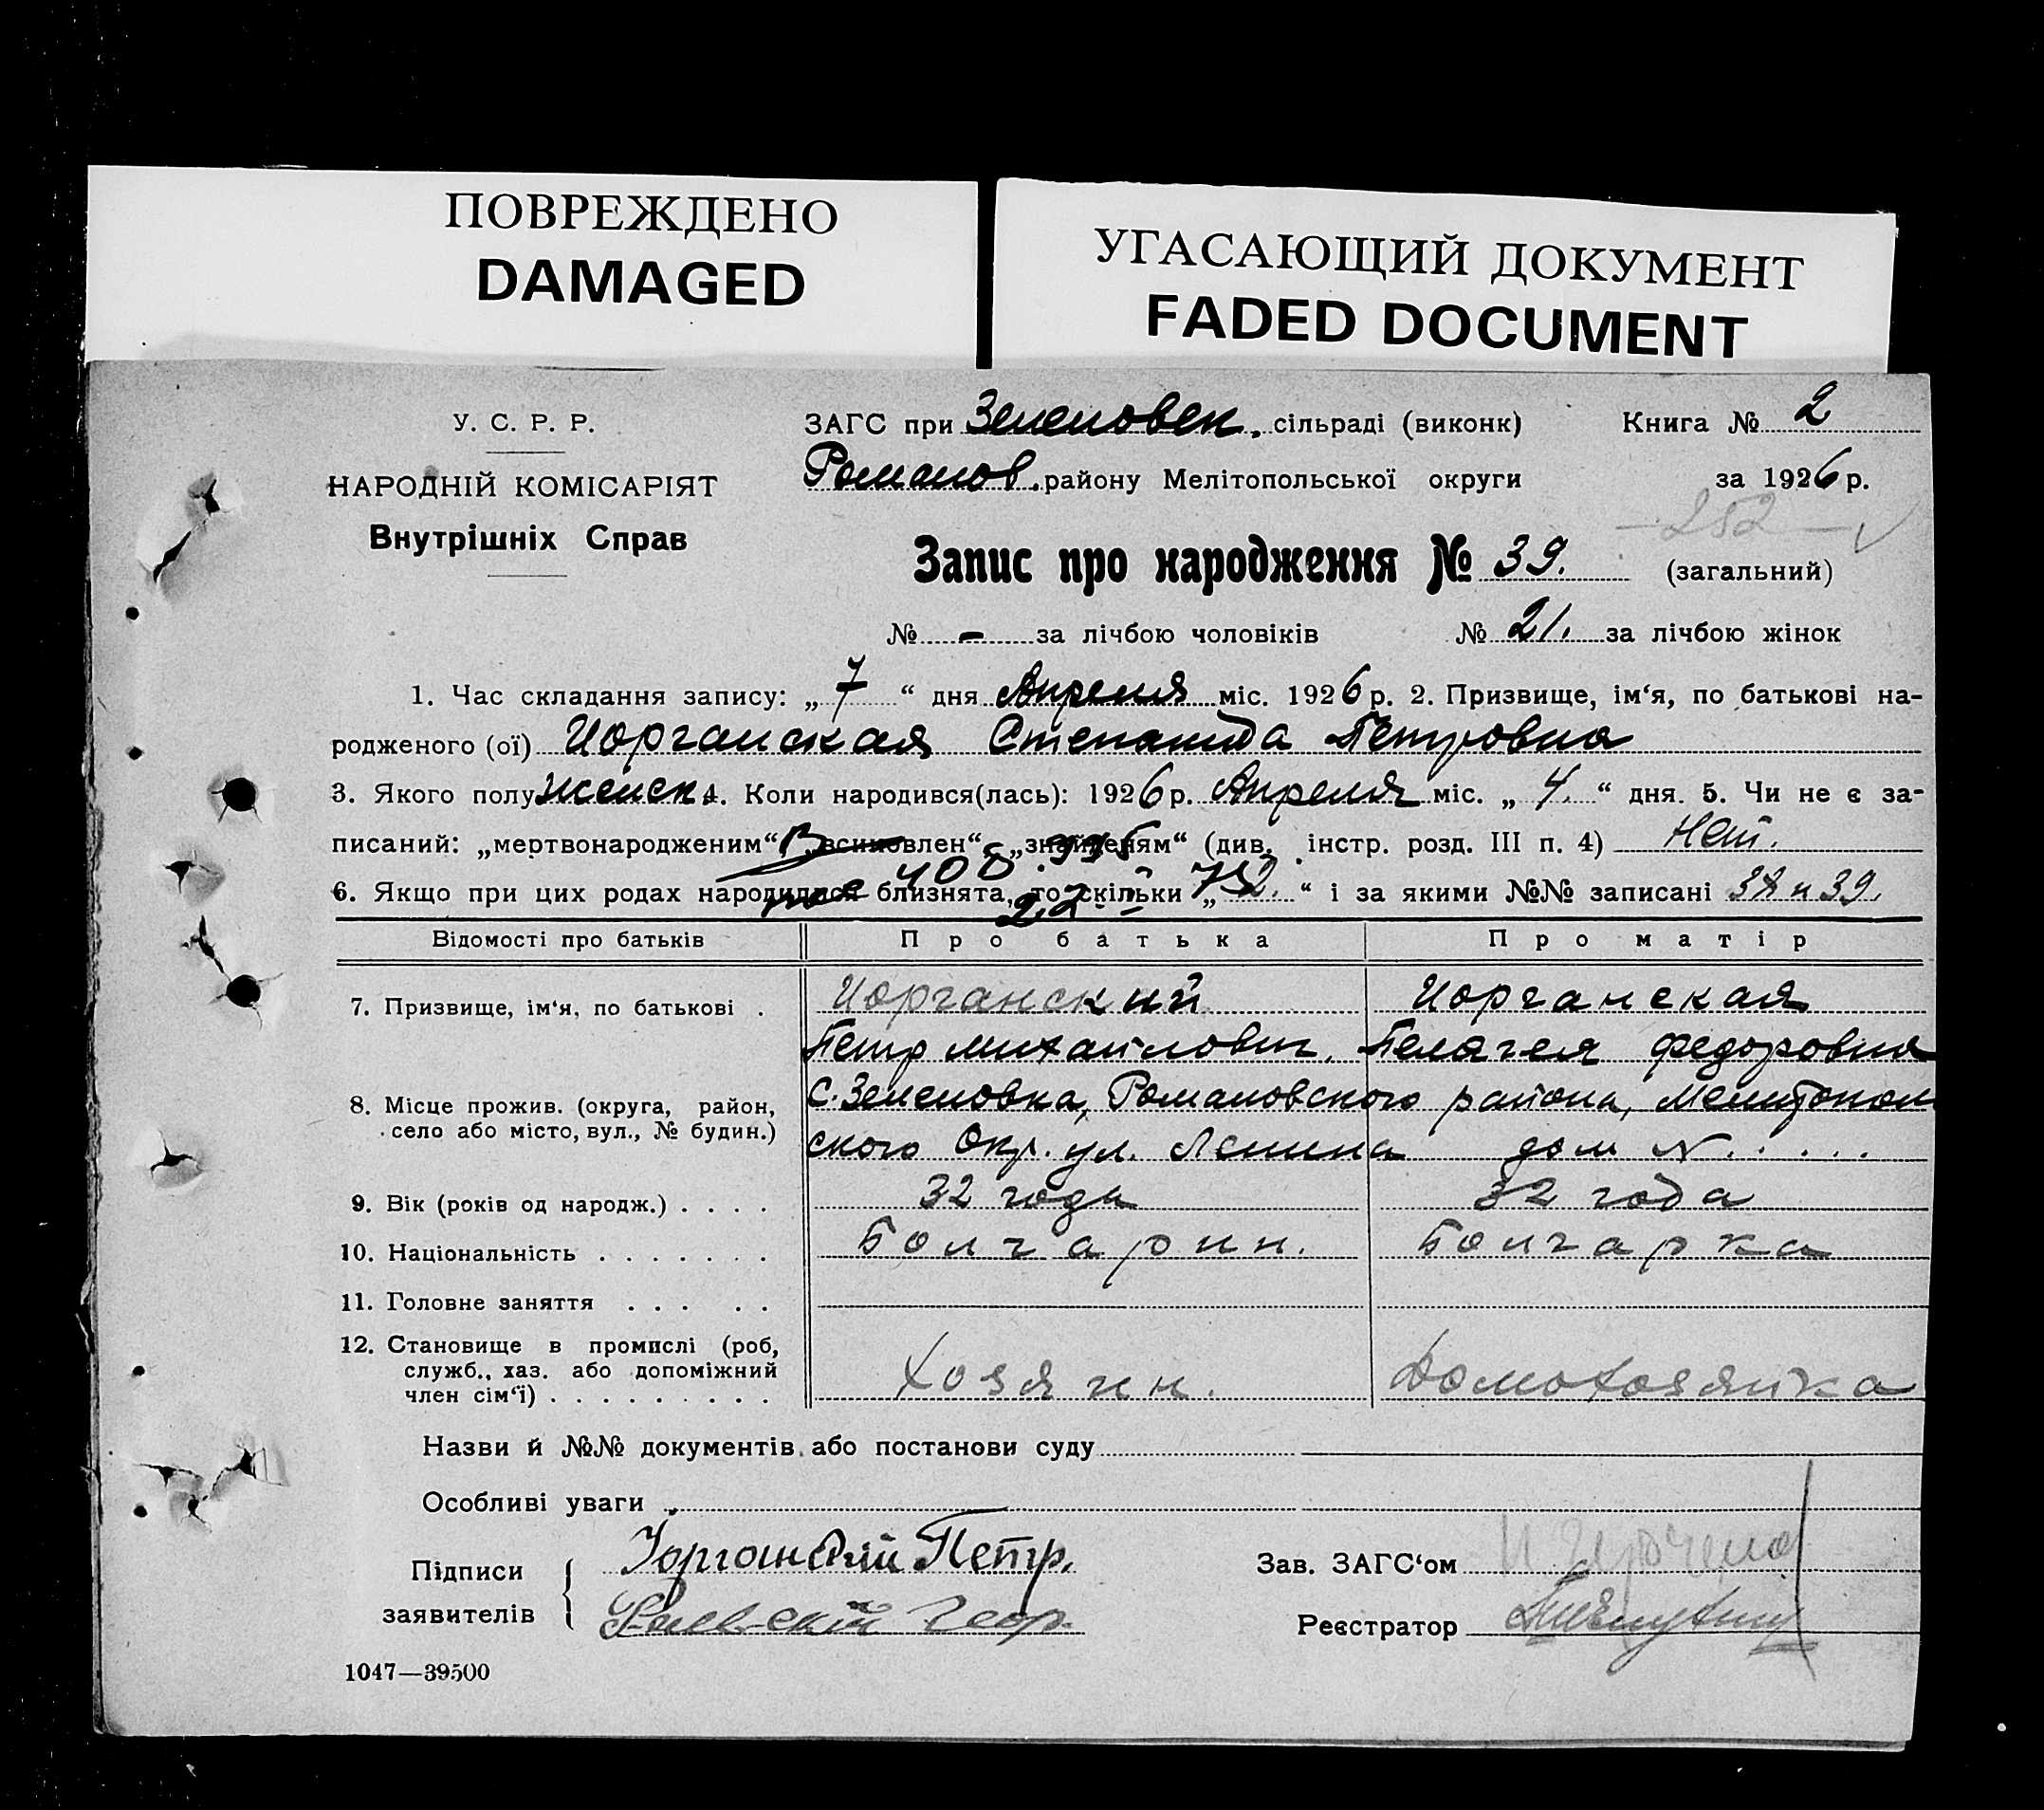 ПОВРЕЖДЕНО
DAMAGED
УГАСАЮЩИЙ ДОКУМЕНТ
FADED DOCUMENT
У. С. Р. Р.
НАРОДНІЙ КОМІСАРІЯТ
Внутрішніх Справ
ЗАГС при Зеленовск. сільраді (виконк) Книга № 2
Романов. району Мелітопольської округи за 1926 р.
252
Запис про народження № 39. (загальний)
№ - за лічбою чоловіків № 21. за лічбою жінок
1. Час складання запису: „ 7 “ дня Апреля міс. 1926 р. 2. Призвище, ім‘я, по батькові на-
родженого (ої) Иорганская Степанида Петровна
3. Якого полу женск. 4. Коли народився(лась): 1926 р. Апреля міс. „ 4. “ дня. 5. Чи не є за-
писаний: „мертвонародженим“, „всиновлен“, „знайденям“ (див. інстр. розд. III п. 4) Нет.
6. Якщо при цих родах народилися близнята, то скільки „ 2. “ і за якими №№ записані 38 и 39.
Відомості про батьків Про батька Про матір
7. Призвище, ім‘я, по батькові . Иорганский Иорганская
Петр Михайлович. Пелагея Федоровна
8. Місце прожив. (округа, район, село або місто, вул., № будин.) С. Зеленовка, Романовского района, Мелитополь
ского Окр. ул. Ленина дом N . . . . .
9. Вік (років од народж.) . . . . 32 года 32 года
10. Національність . . . . . . . Болгарин. Болгарка
11. Головне заняття . . . . .
12. Становище в промислі (роб, служб., хаз. або допоміжний член сім‘ї) . . . . . . . . . Хозяин. Домохозяйка
Назви й №№ документів або постанови суду
Особливі уваги
Підписи заявителів Іорганский Петр.
Геор.
Зав. ЗАГС‘ом
Реєстратор
1047—39500